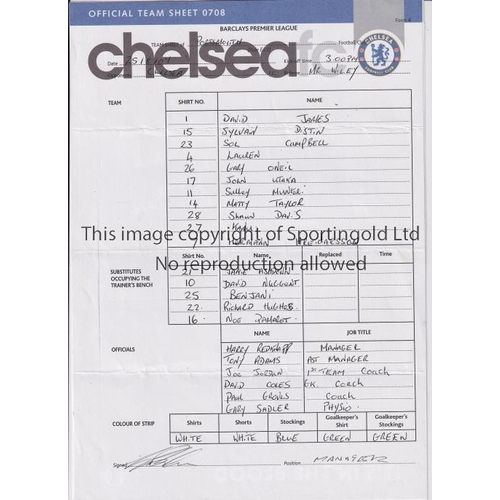 OFFICIAL TEAM SHEET 0708
Form 4
BARCLAYS PREMIER LEAGUE
chelseafc
TEAM SHEET OF PORTSMOUTH Football Club
Date 25/8/07 Kick-off time 3.00PM
CHELSEA MR WILEY
TEAM SHIRT NO. NAME
1 DAVID JAMES
15 SYLVAN DISTIN
23 SOL CAMPBELL
4 LAUREN
26 GARY ONEIL
17 JOHN UTAKA
11 SULLEY MUNTERI
14 MATTY TAYLOR
28 SEAN DAVIS
27 KANU
HERMANN HREIDARSSON
This image copyright of Sportingold Ltd
No reproduction allowed
SUBSTITUTES OCCUPYING THE TRAINER'S BENCH
Shirt No. Name Replaced Time
21 JAMIE ASHDOWN
10 DAVID NUGENT
25 BENJANI
22 RICHARD HUGHES
16 NOE PAMAROT
NAME JOB TITLE
OFFICIALS
HARRY REDKNAPP MANAGER
TONY ADAMS AST MANAGER
JOE JORDAN 1ST TEAM COACH
DAVID COLES GK. COACH
PAUL GROVES COACH
GARY SADLER PHYSIO
COLOUR OF STRIP Shirts Shorts Stockings Goalkeeper's Shirt Goalkeeper's Stockings
WHITE WHITE BLUE GREEN GREEN
Signed Position MANAGER